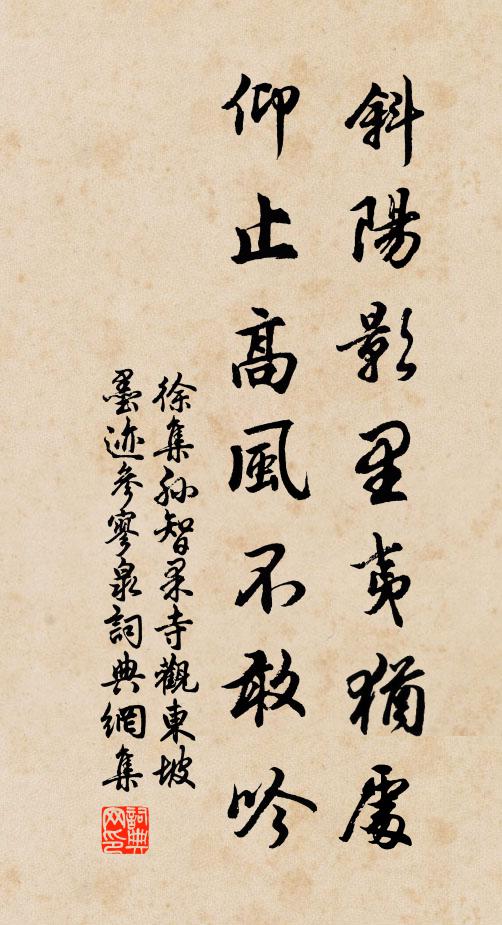 斜陽影里夷猶處
仰止高風不敢吟
徐集孙智果寺觀東坡
墨迹參寥泉詞典網集
詞典网印